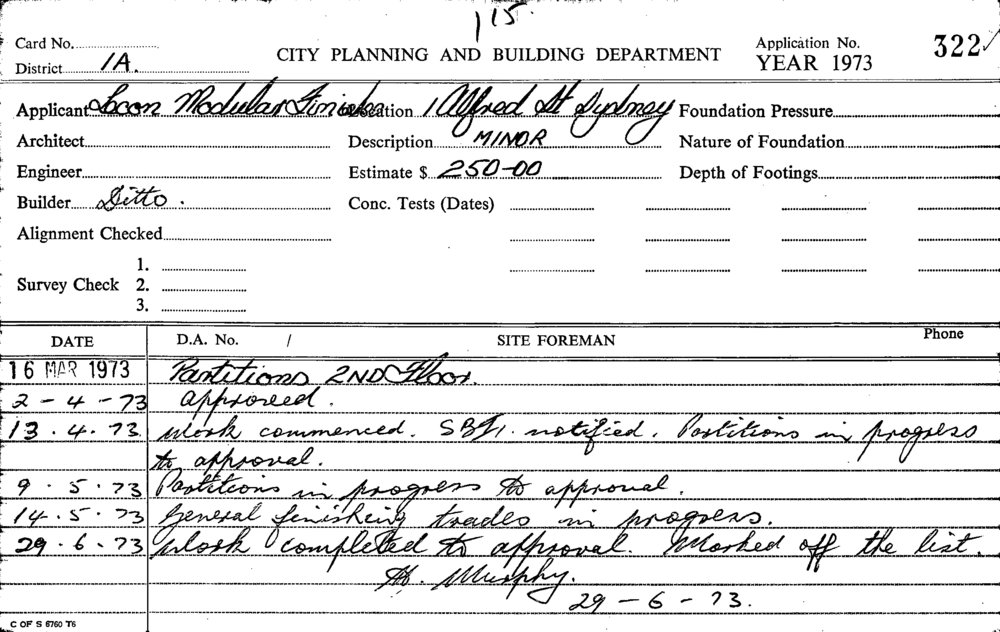 115.
Card No.
District 1A.
CITY PLANNING AND BUILDING DEPARTMENT
Application No. 322
YEAR 1973
Applicant Locon Modular Finishes Location 1 Alfred St Sydney Foundation Pressure
Architect Description MINOR Nature of Foundation
Engineer Estimate $ 250-00 Depth of Footings
Builder Ditto. Conc. Tests (Dates)
Alignment Checked
Survey Check 1.
2.
3.
DATE D.A. No. / SITE FOREMAN Phone
16 MAR 1973 Partitions 2ND Floor.
2-4-73 approved.
13.4.73 Work commenced. notified. Partitions in progress
to approval.
9.5.73 Partitions in progress to approval.
14.5.73 General finishing trades in progress.
29.6.73 Work completed to approval. Marked off the list.
Murphy.
29-6-73.
C OF S 6760 T6